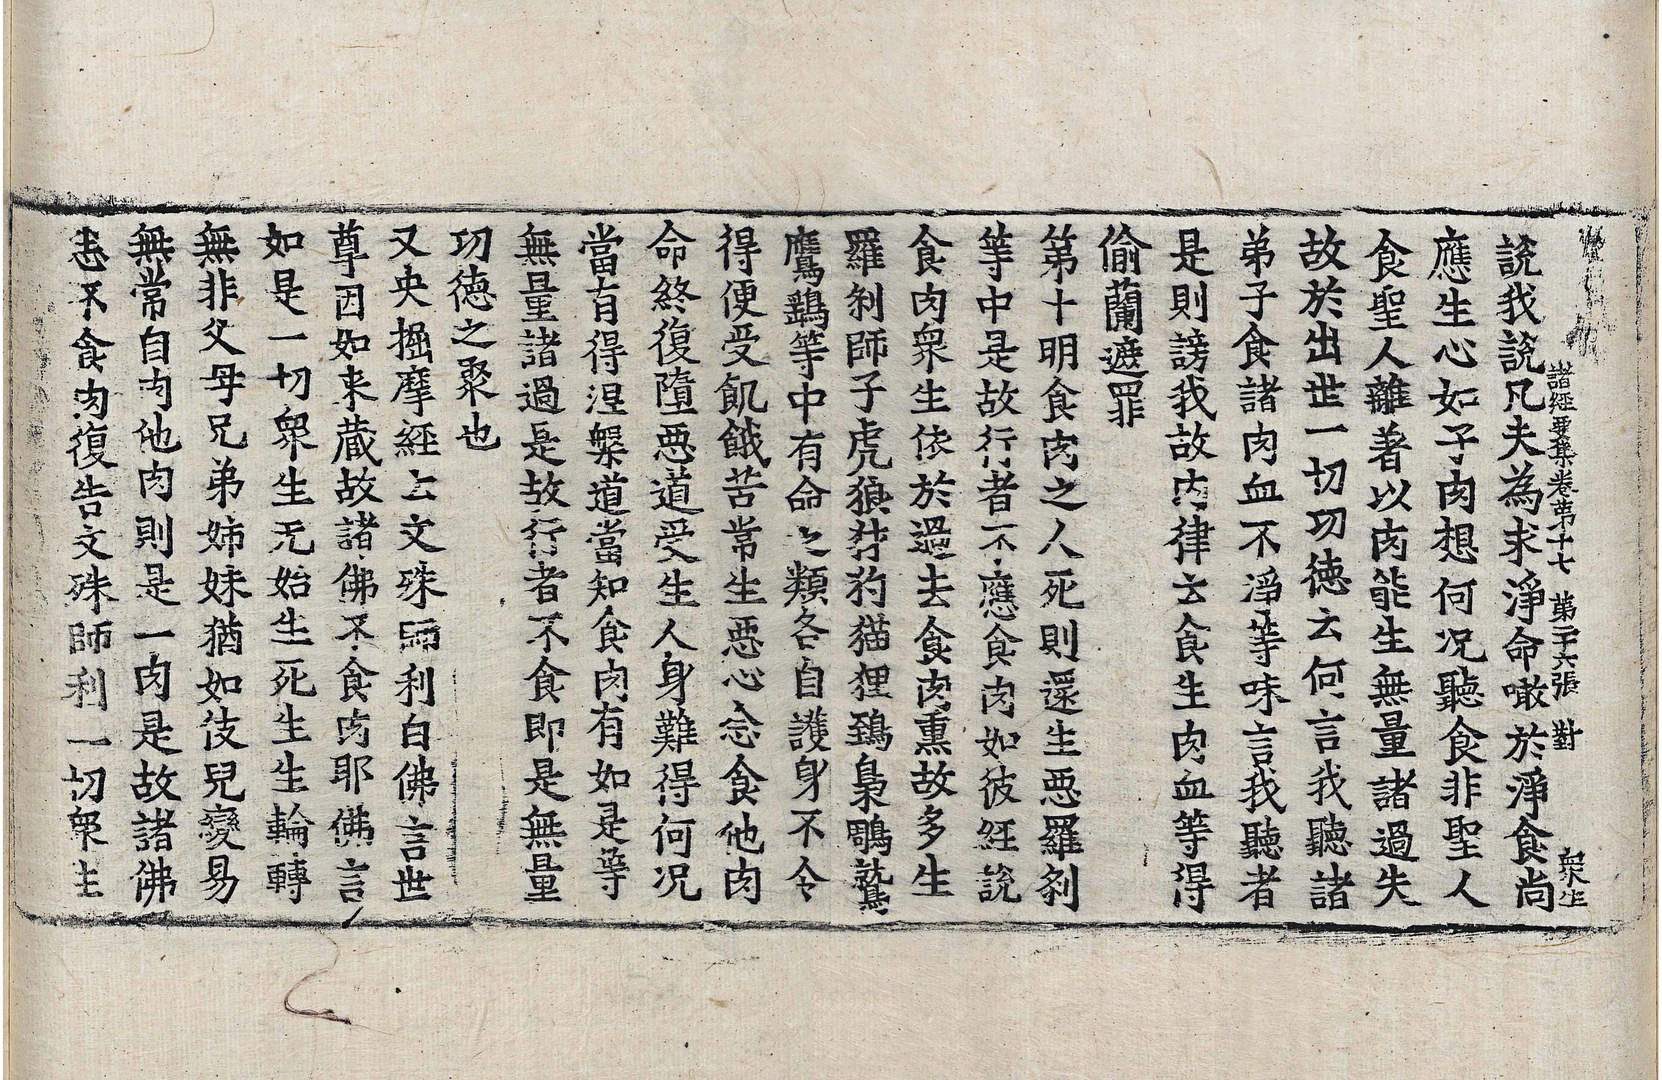 諸經要集卷苐十七 第二十六張 對 衆生
說我說凡夫為求淨命噉於淨食尚
應生心如子肉想何况聽食非聖人
食聖人離著以肉能生無量諸過失
故於出世一切功徳云何言我聽諸
弟子食諸肉血不淨等味言我聽者
是則謗我故内律云食生肉血等得
偷蘭遮罪
第十明食肉之人死則還生惡羅剎
等中是故行者不應食肉如彼経說
食肉衆生依於過去食肉熏故多生
羅剎師子虎狼犲豹猫狸鵄梟鵰鷲
鷹鷂等中有命之類各自護身不令
得便受飢餓苦常生惡心念食他肉
命終復墮惡道受生人身難得何况
當有得涅槃道當知食肉有如是等
無量諸過是故行者不食即是無量
功徳之聚也
又央掘摩經云文殊師利白佛言世
尊因如来藏故諸佛不食肉耶佛言
如是一切衆生无始生死生生輪轉
無非父母兄弟姊妹猶如伎兒變易
無常自肉他肉則是一肉是故諸佛
悉不食肉復告文殊師利一切衆生